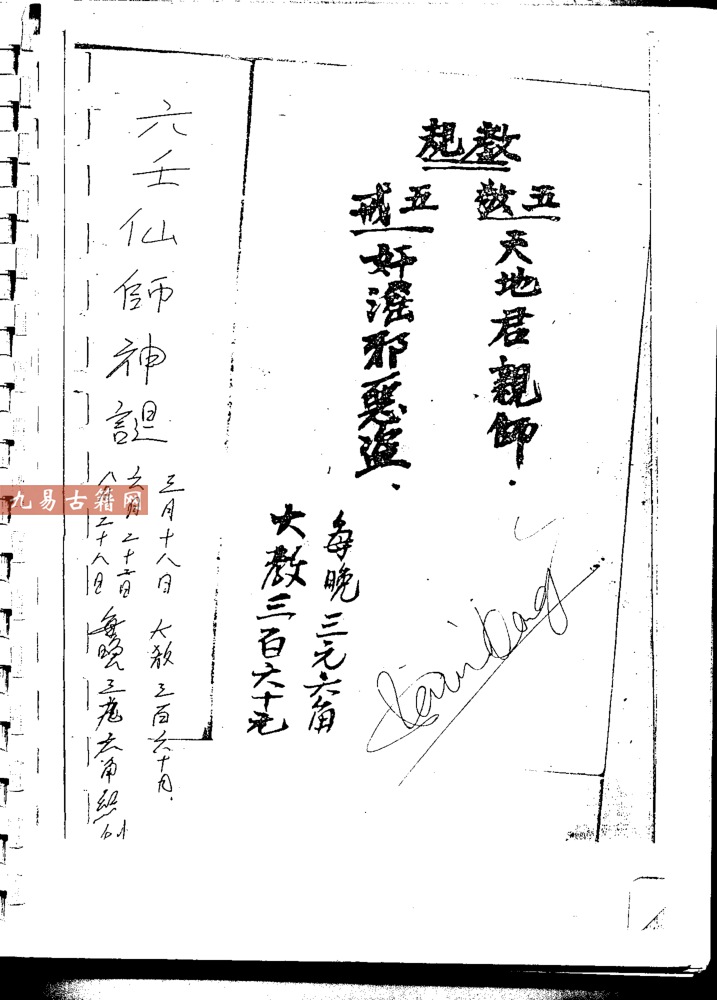 教規
五敬
天地君親師.
五戒
奸淫邪惡盜、
每晚三元六角
大教三百六十元
六壬仙師神誕
三月十八日 大教三百六十
六月二十
八月二十八日 每晚三元六角
九易古籍网